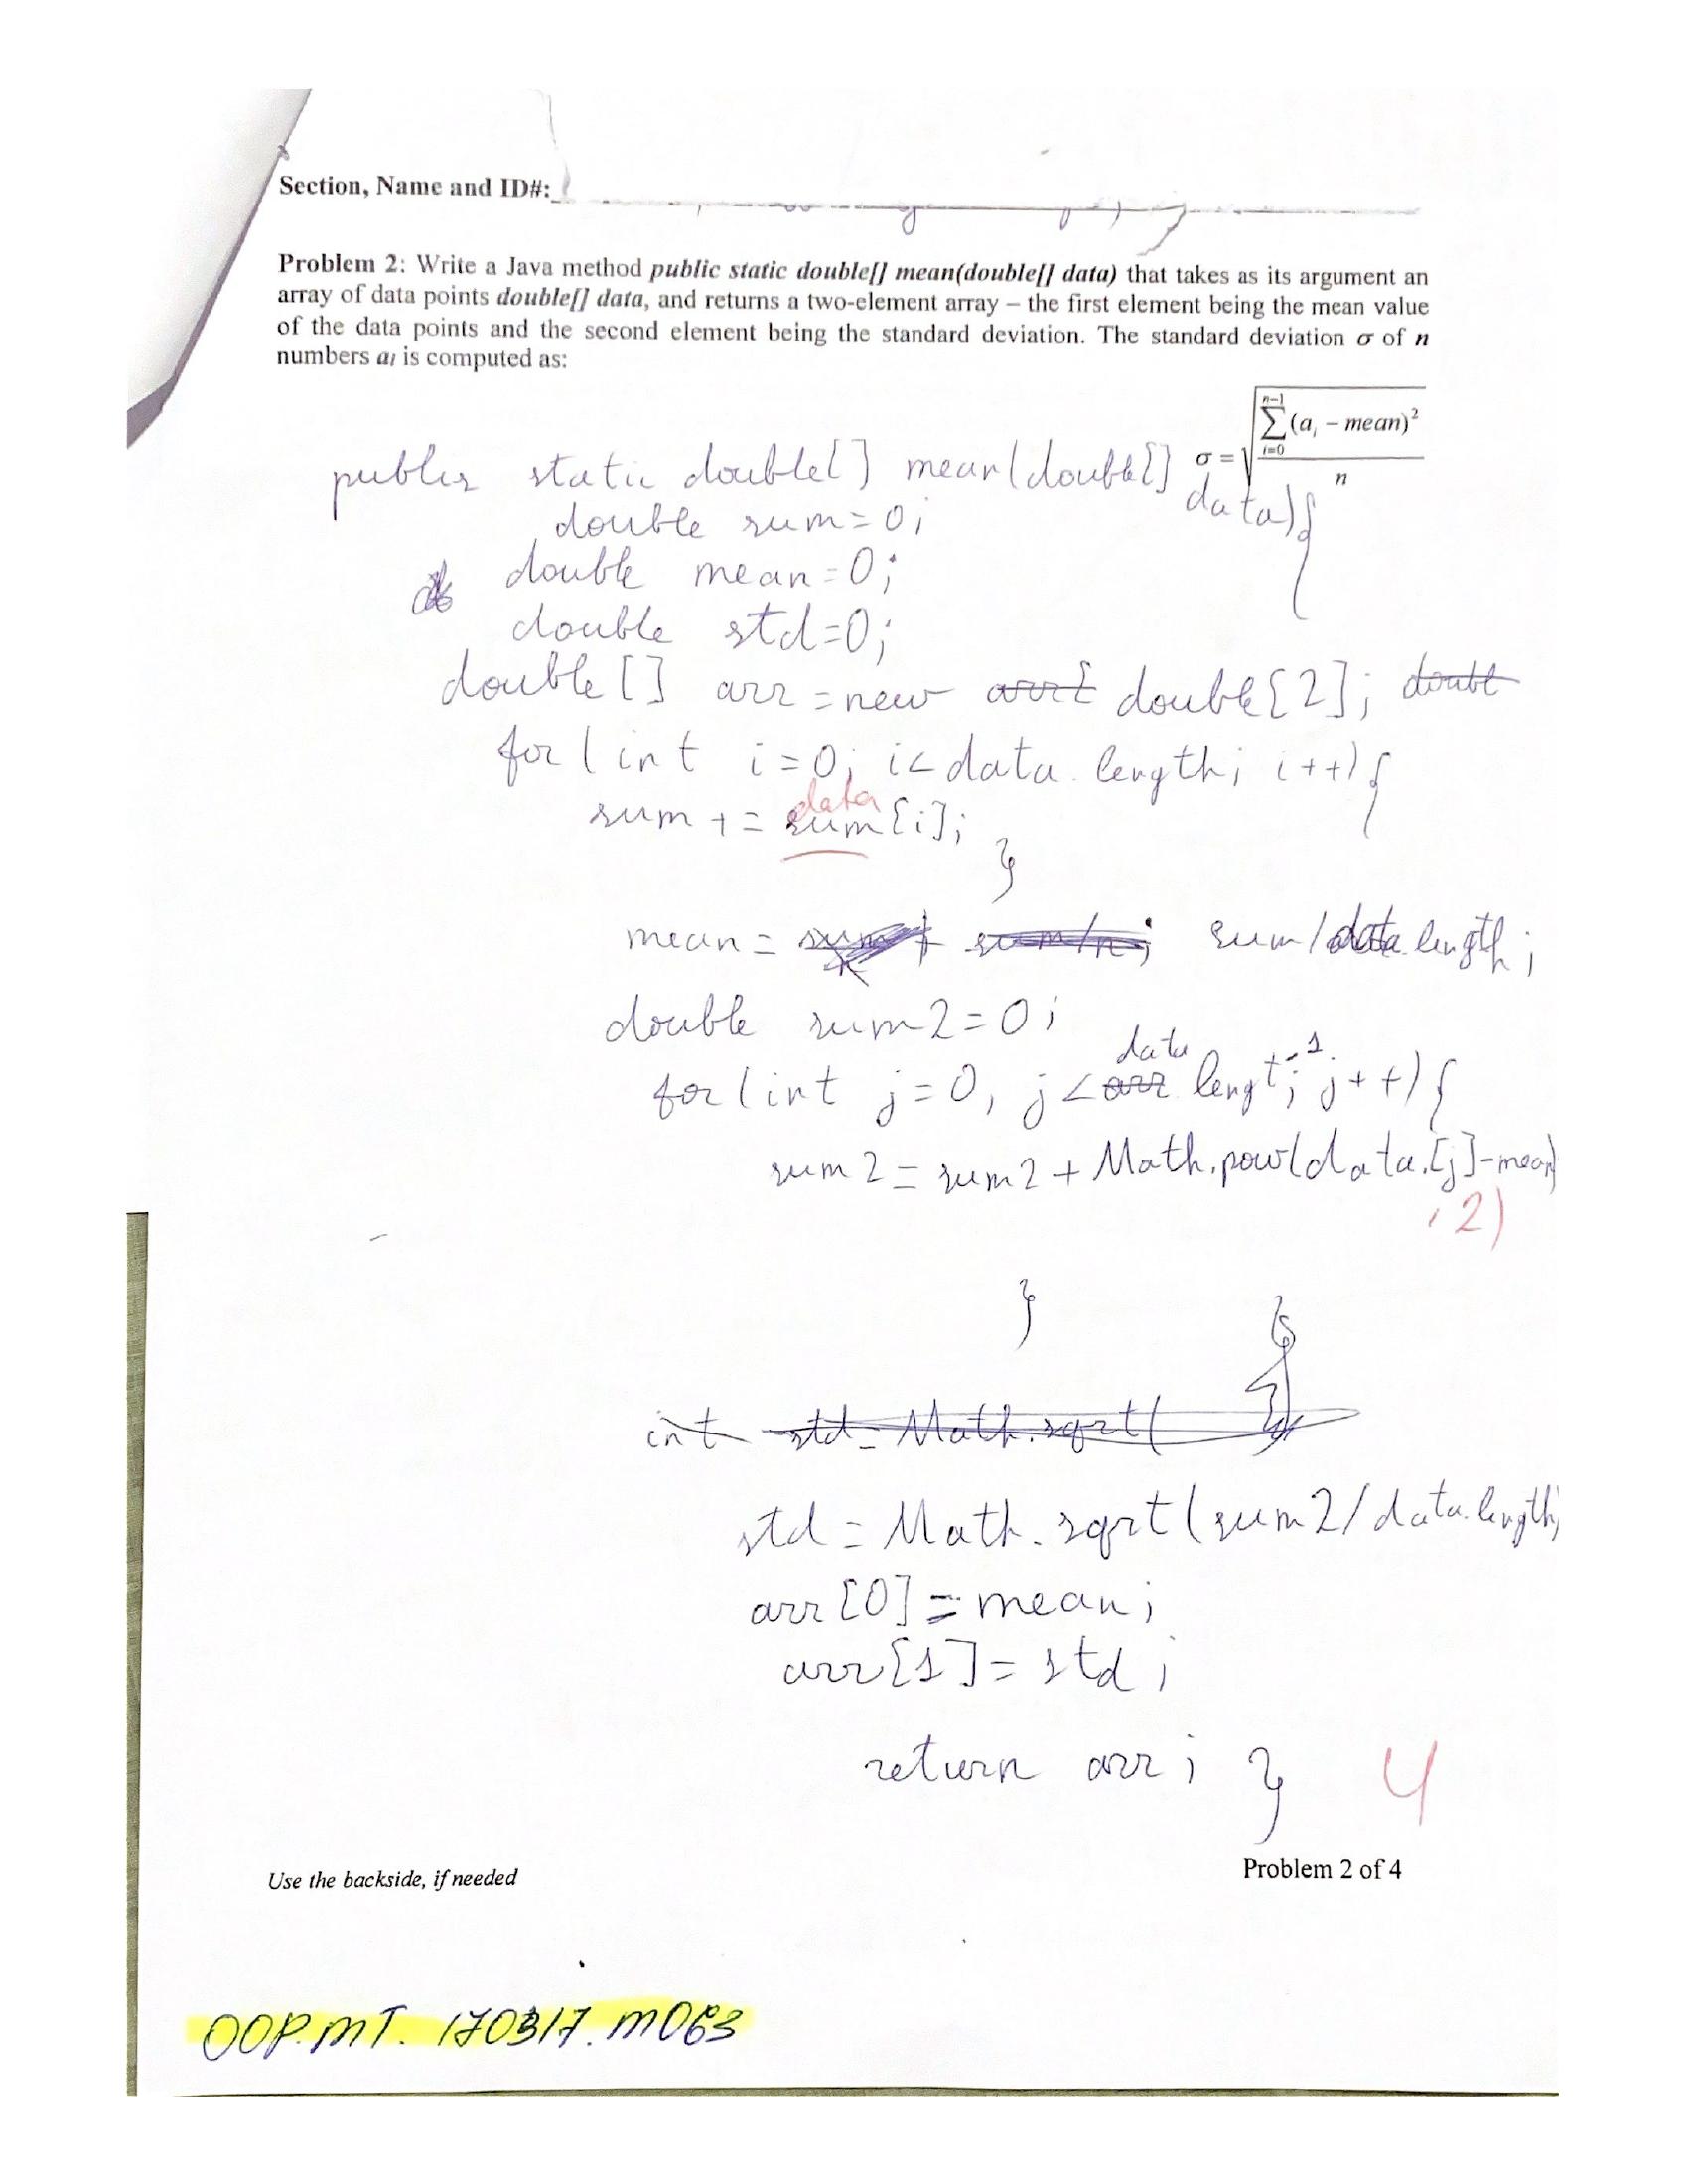 Section, Name and ID#:
Problem 2: Write a Java method public static double[] mean(double[] data) that takes as its argument an
array of data points double[] data, and returns a two-element array – the first element being the mean value
of the data points and the second element being the standard deviation. The standard deviation σ of n
numbers ai is computed as:
σ = √(∑_{i=0}^{n-1} (ai – mean)² / n)
public static double[] mean(double[]
data){
double sum=0;
double mean=0;
double std=0;
double[] arr=new arr[ double[2]; doubl
for(int i=0; i<data.length; i++){
data
sum += sum[i];
}
mean = sum/n; sum/data.length;
double sum2=0;
data -1
for(int j=0, j<arr.lengt; j++){
sum2 = sum2 + Math.pow(data.[j]-mean)
,2)
}
int std= Math.sqrt(
std = Math.sqrt(sum2/data.length)
arr[0]=mean;
arr[1]=std;
return arr; }
4
Use the backside, if needed
Problem 2 of 4
OOP.MT.170317.M063